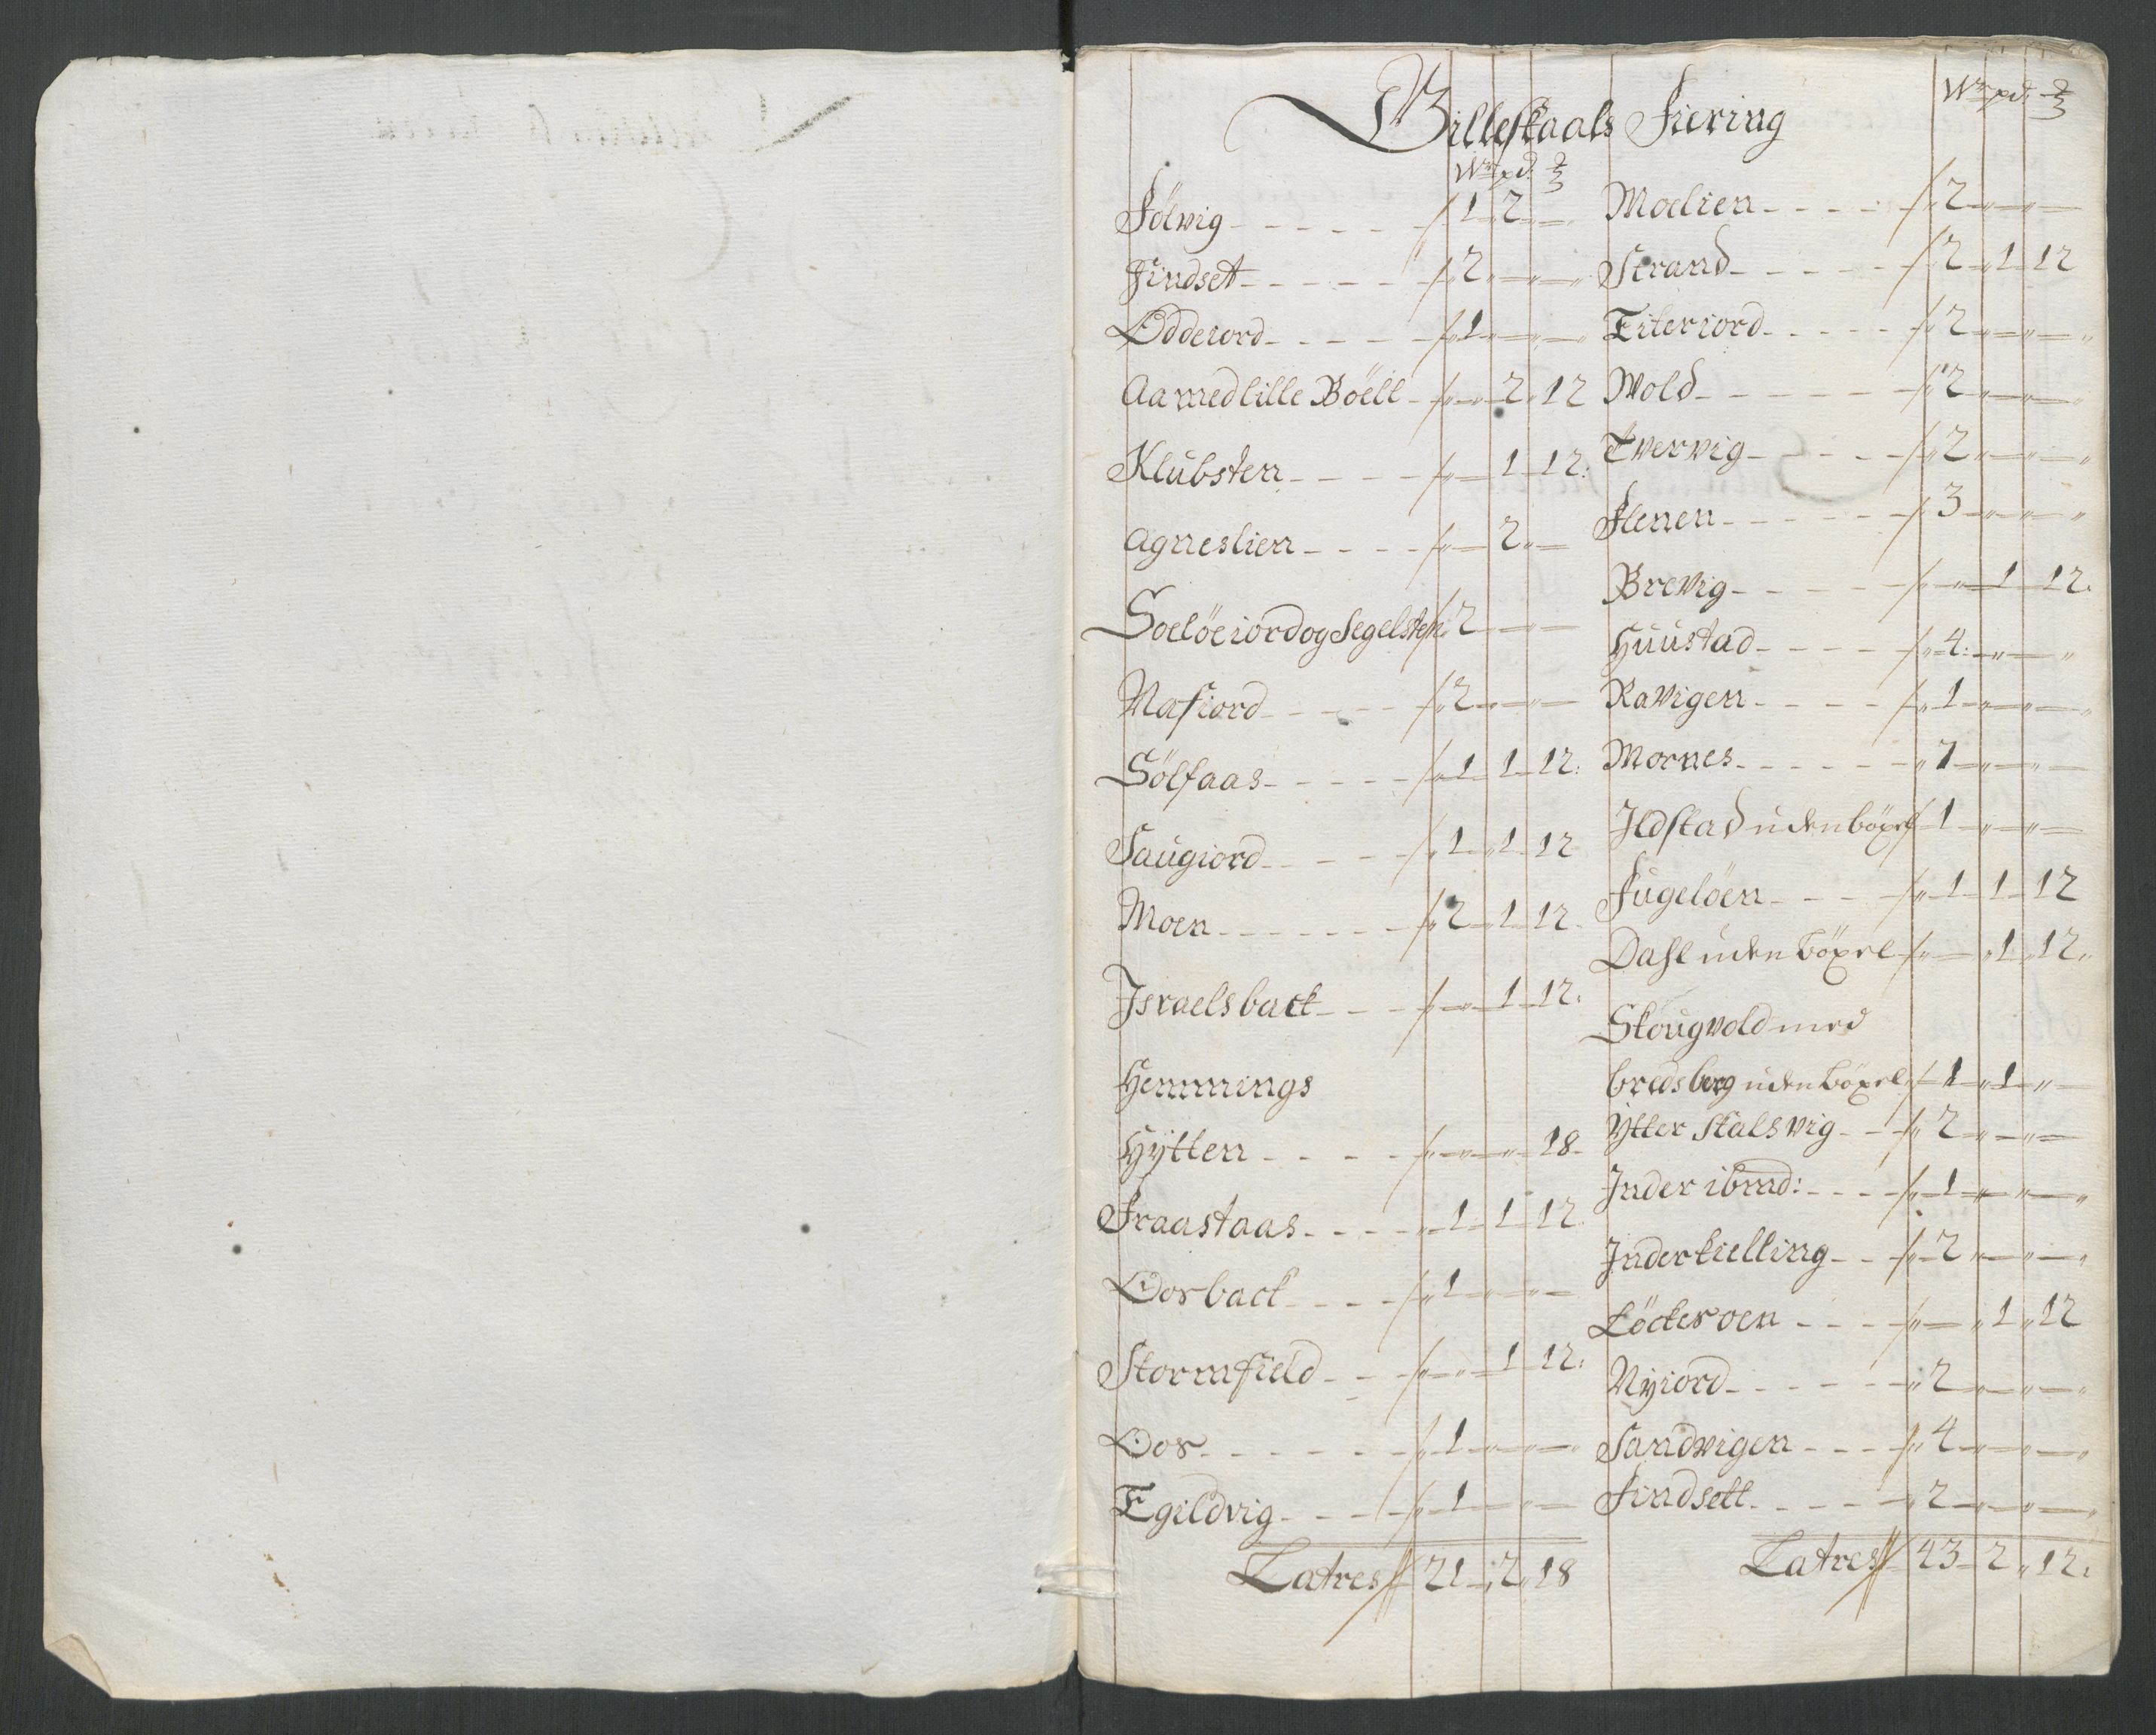 Billeskaals Fiering
Wr pd: ℔
Fölvig - - - - - - 1 2 -
Findset - - - - - - 2 " - " - "
Odderord - - - - - " 1 " - " - "
Aa med lille Böell - " - 2 " 12
Klübsten - - - - - " - 1 - 12:
Agneslien - - - - " - 2 " -
Soelöeiord og Segelsten " 2 - " - " -
Nafiord - - - - - " 2 - " - " -
Sölfaas - - - - - " 1 1 - 12:
Saugiord - - - - " 1 " 1 - 12
Moen - - - - - - " 2 " 1 - 12
Israelsback - - - " - " 1 - 12:
Hemmings
Hÿtten - - - - " - " - " 18 -
Fraastaas - - - - " 1 - 1 - 12
Oorback - - - - " 1 - " - " -
Stormfield - - - " - " 1 12:
Oor - - - - - - " 1 - " - " -
Egildvig - - - - " 1 - " - " -
Latres 21 " 2 " 18
Wr pd: ℔
Moelien - - - - - " 2 - " - " -
Strand - - - - - - 2 " 1 - 12
Eiteriord - - - - - " 2 - " - " - "
Wold - - - - - - " 2 - " - " -
Tvervig - - - - - " 2 " - " - "
Flenen - - - - - - " 3 - " - " - "
Brevig - - - - - " - " 1 12:
Huustad - - - - - " 4: - " - "
Ravigen - - - - - " 1 - " - " - "
Mornes - - - - - - " 7 - " - " -
Ildstad uden böxel 1 - " - " -
Fugelöen - - - - " 1 - 1 - 12
Dahl uden böxel - " - " 1 " 12 "
Skougvold med
bredsberg uden böxel - 1 " 1 - " -
Ytter Skalsvig - - " 2 " - " -
Inder ibmd: - - - - " 1 " - " - "
Inder kielling - - " 2 " - " - "
Löckeroen - - - - " - " 1 " 12
Nyiord - - - - - - " 2 - " - " - "
Sandvigen - - - - " 4 - " - " - "
Findsett - - - - - " 2 - " - " - "
Latres 43 - 2 " 12: